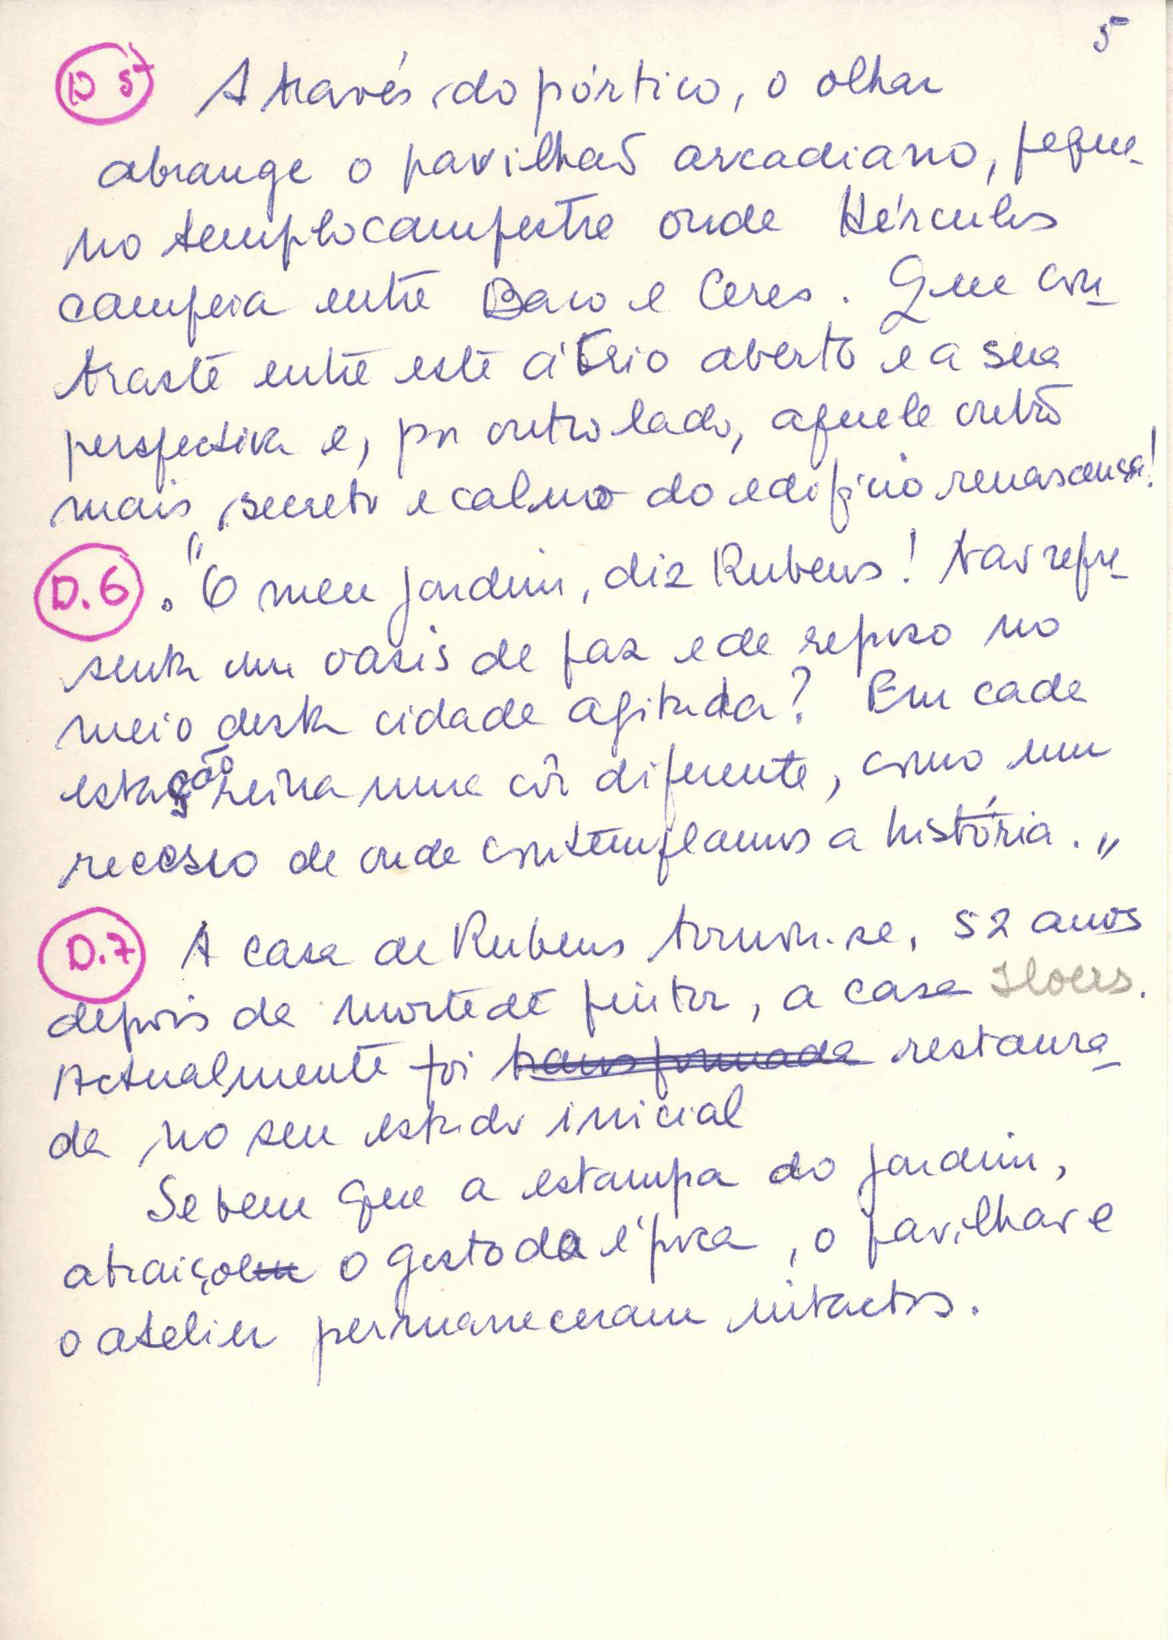 5
D 5 Através do pórtico, o olhar
abrange o pavilhão arcadiano, peque-
no templo campestre onde Hércules
campeia entre Baco e Ceres. Que con-
traste entre este átrio aberto e a sua
perspectiva e, por outro lado, aquele outro
mais secreto e calmo do edifício renascença!
D.6. "O meu jardim, diz Rubens! Não repre-
senta um oasis de paz e de repouso no
meio desta cidade agitada? Em cada
estação reina uma côr diferente, como um
recesso de onde contemplamos a história."
D.7 A casa de Rubens tornou-se, 52 anos
depois da morte dê pintor, a casa Hoeis.
Actualmente foi transformada restaura-
da no seu estado inicial
Se bem que a estampa do jardim,
atraiçoe o gosto da época, o pavilhão e
o atelier permaneceram intactos.